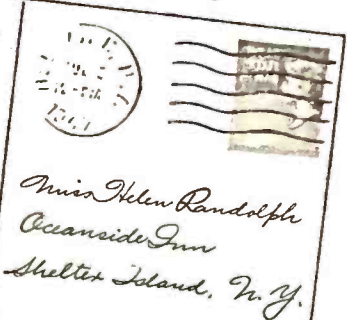 Miss Helen Randolph
Oceanside Inn
Shelter Island, N.Y.